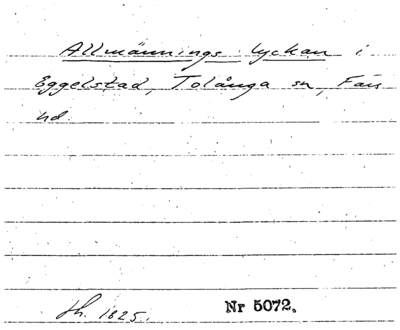 Allmännings lyckan i
Eggelstad, Tolånga sn, Färs
hd.
Jh. 1825.
Nr 5072.